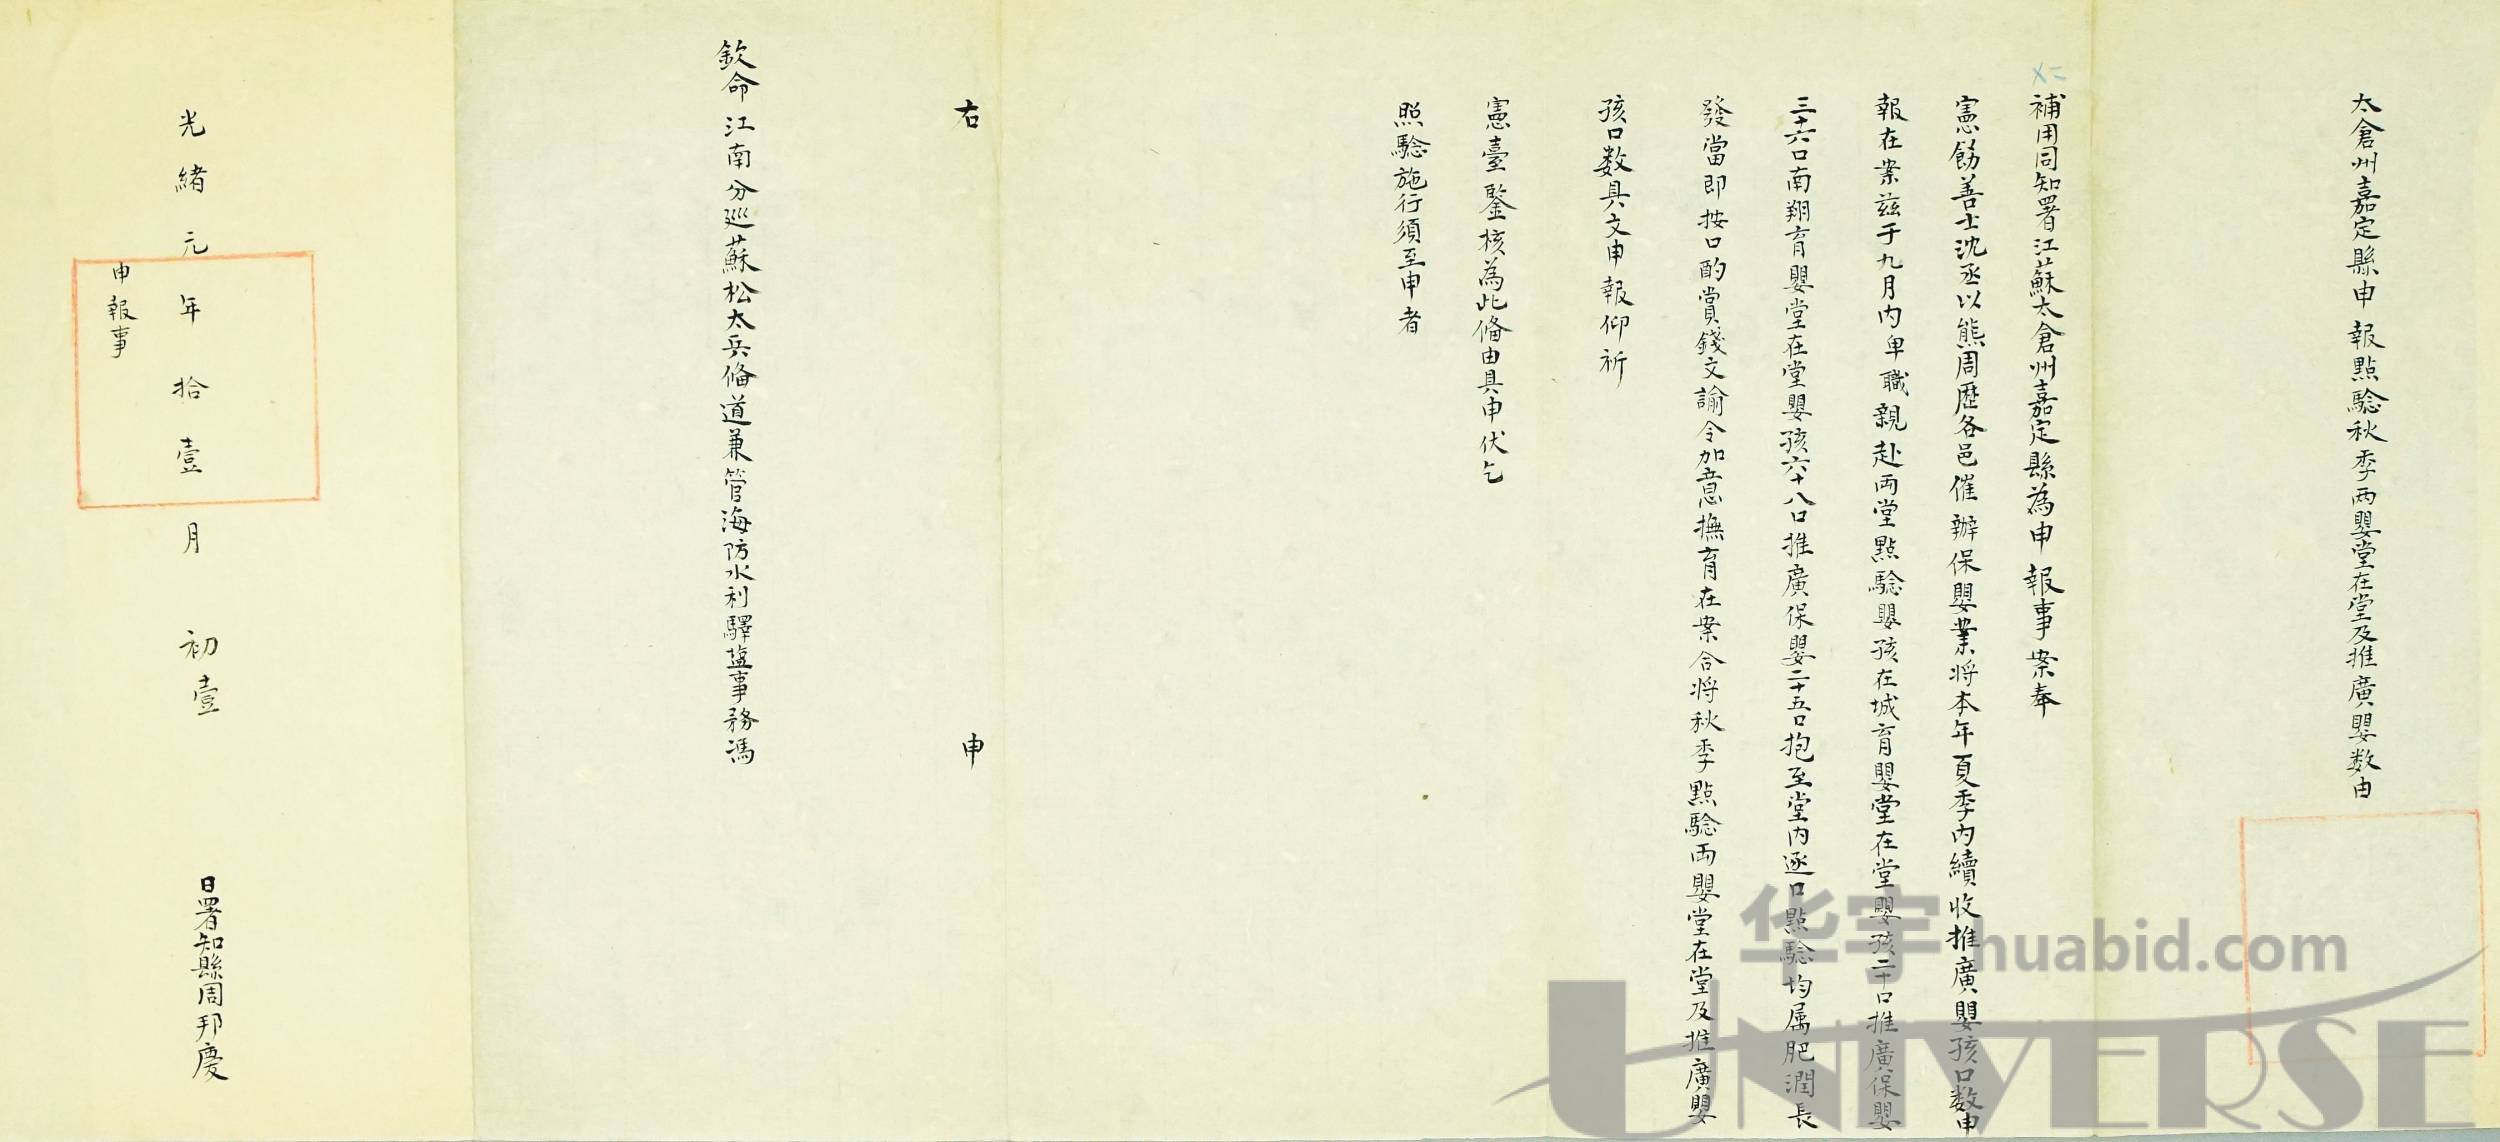 太倉州嘉定縣申報點騐秋季兩嬰堂在堂及推廣嬰数由
補用同知署江蘇太倉州嘉定縣為申報事案奉
憲飭善士沈丞以熊周歴各邑催辦保嬰業将本年夏季内續收推廣嬰孩口数申
報在案兹于九月内卑職親赴両堂點騐嬰孩在城育嬰堂在堂嬰孩二十口推廣保嬰
三十六口南翔育嬰堂在堂嬰孩六十八口推廣保嬰二十五口抱至堂内逐口點騐均属肥潤長
發當即按口酌賞錢文諭令加意撫育在案合将秋季點騐両嬰堂在堂及推廣嬰
孩口数具文申報仰祈
憲臺鑒核為此俻由具申伏乞
照騐施行須至申者
右申
欽命江南分廵蘇松太兵俻道兼管海防水利驛塩事務馮
光緒元年拾壹月初壹日署知縣周邦慶
申報事
华宇 huabid.com
UNIVERSE